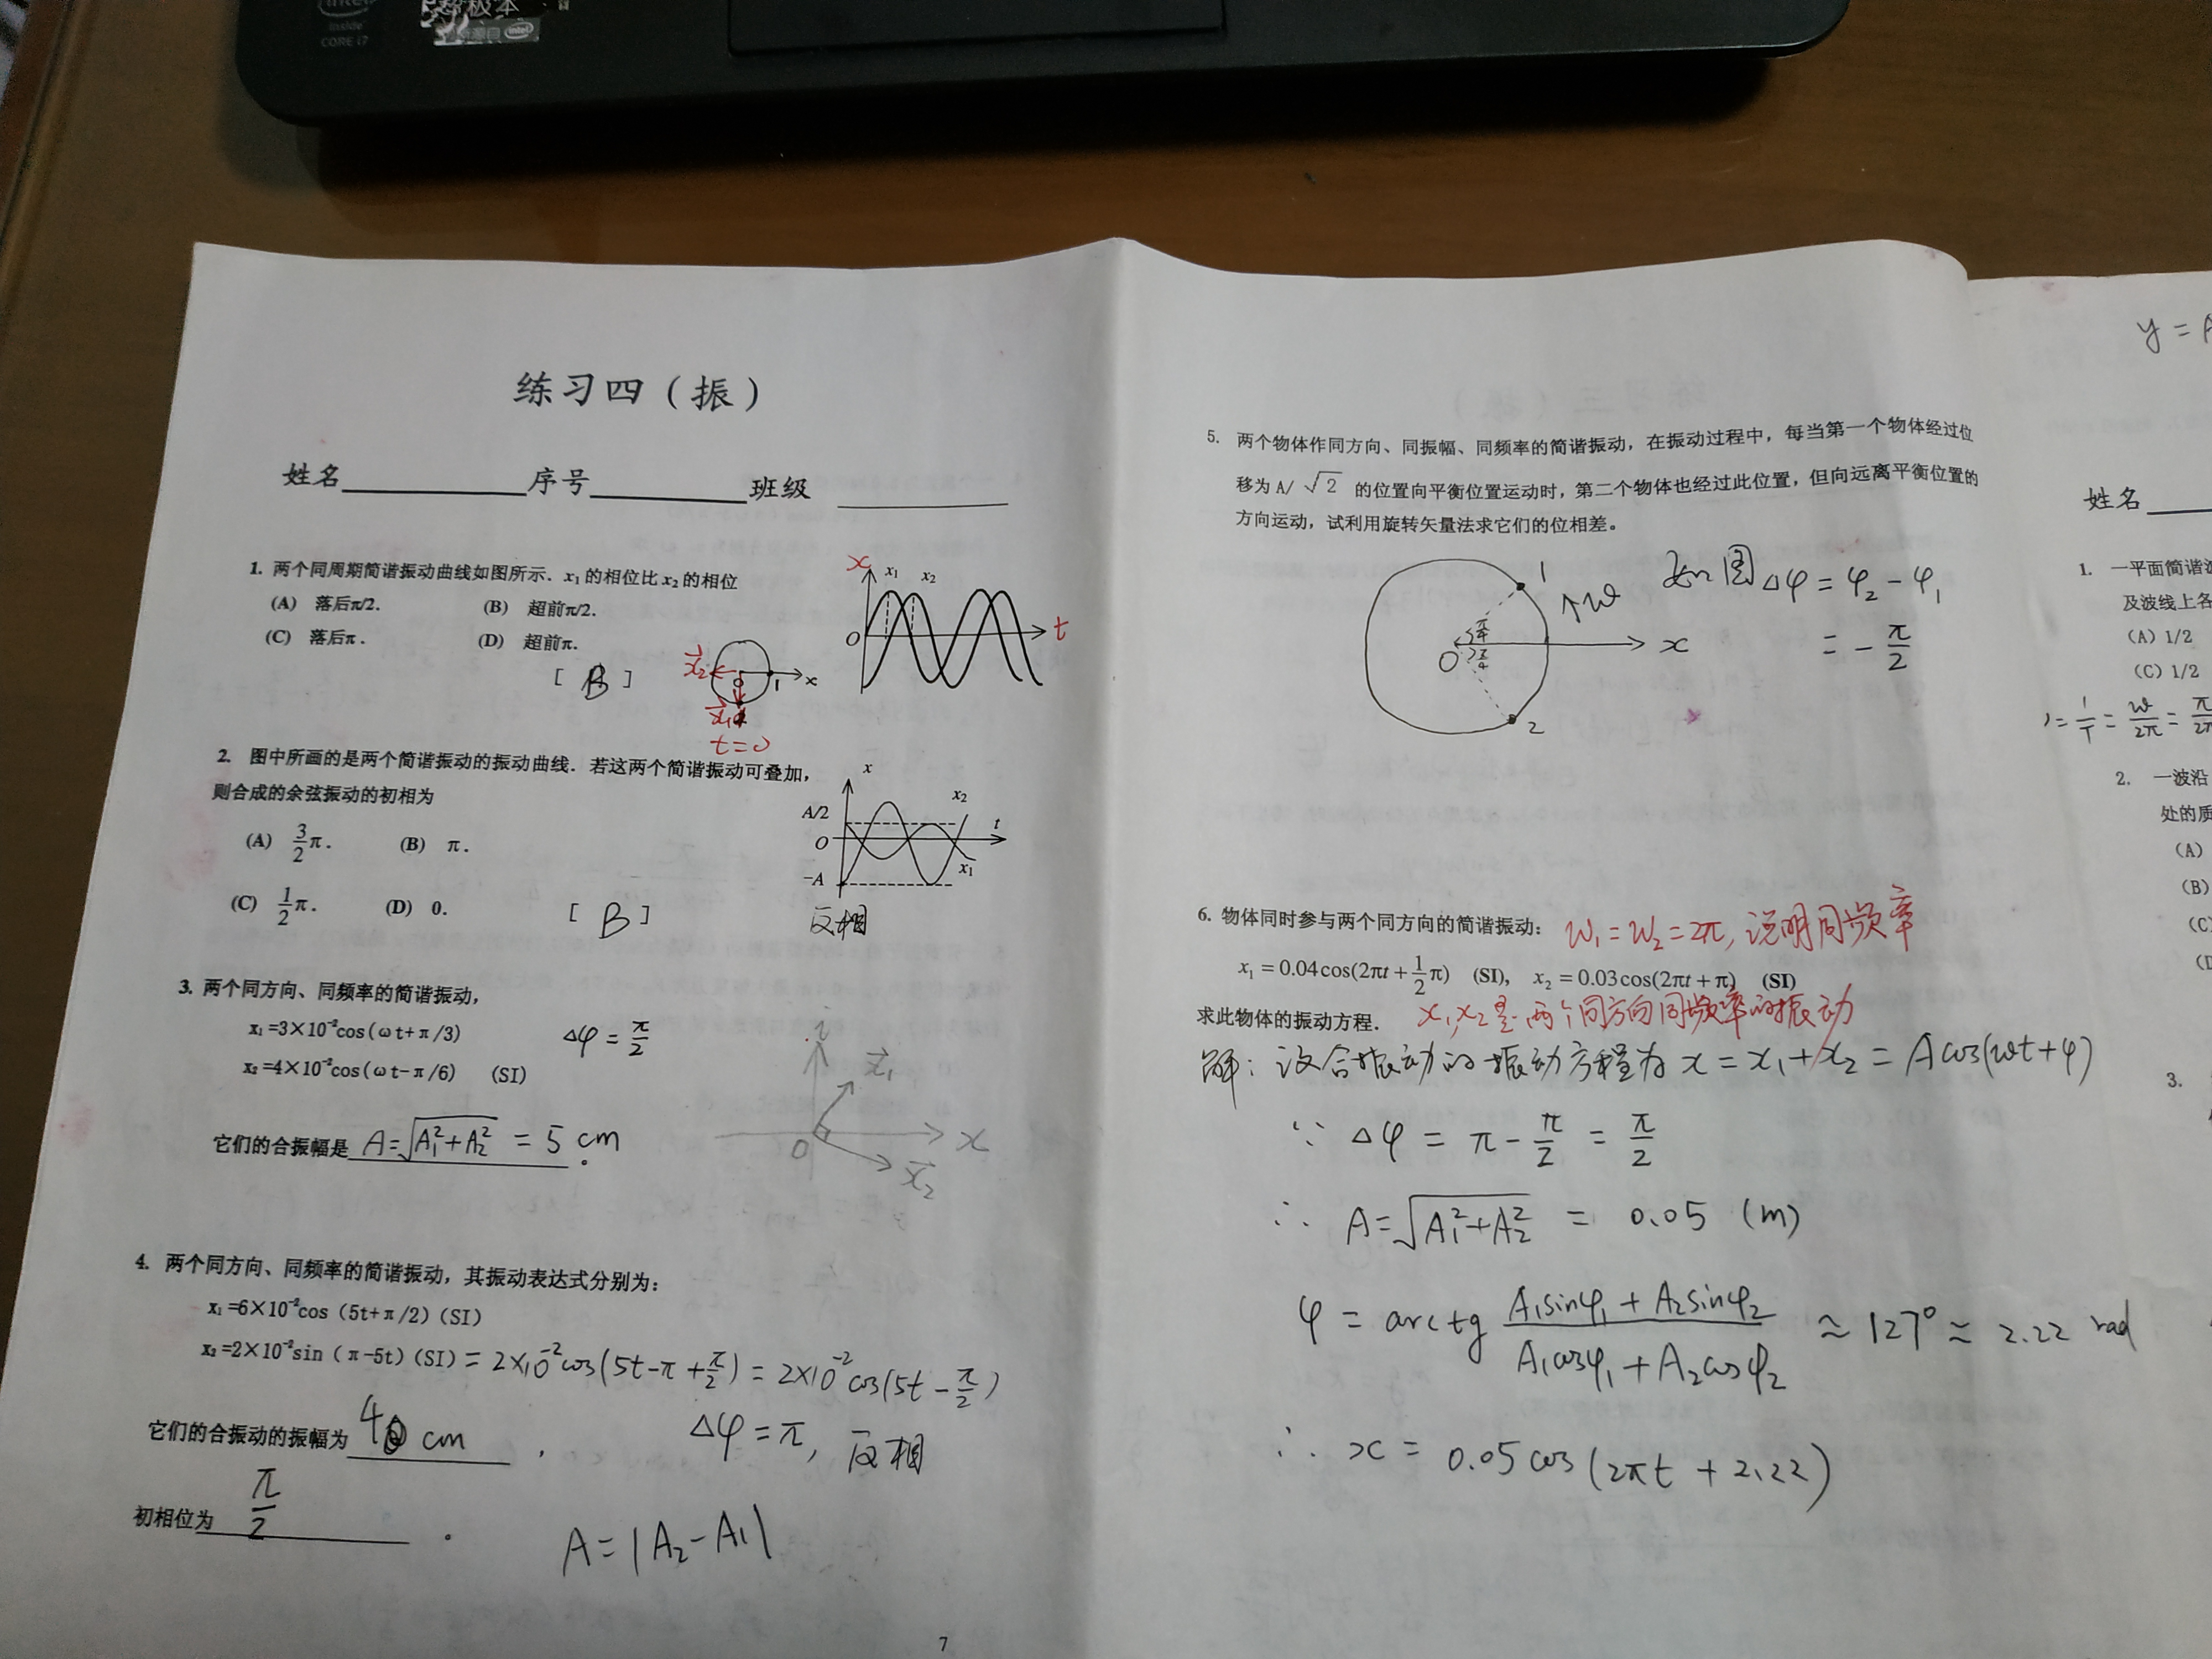 intel
inside
CORE i7
超极本
intel
练习四（振）
姓名 序号 班级
1. 两个同周期简谐振动曲线如图所示．x₁的相位比x₂的相位
(A) 落后π/2. (B) 超前π/2.
(C) 落后π. (D) 超前π.
[ B ]
x
x₁ x₂
O
t
x⃗₂
O
1
x
x⃗₁
t=0
2. 图中所画的是两个简谐振动的振动曲线．若这两个简谐振动可叠加，
则合成的余弦振动的初相为
(A) 3/2 π. (B) π.
(C) 1/2 π. (D) 0.
[ B ]
x
A/2
x₂
O
t
x₁
-A
反相
3. 两个同方向、同频率的简谐振动，
x₁=3×10⁻²cos(ωt+π/3)
Δφ = π/2
x₂=4×10⁻²cos(ωt-π/6) (SI)
它们的合振幅是 A=√(A₁²+A₂²) = 5 cm 。
x⃗₁
O
x
x⃗₂
4. 两个同方向、同频率的简谐振动，其振动表达式分别为：
x₁=6×10⁻²cos (5t+π/2) (SI)
x₂=2×10⁻²sin (π-5t) (SI) = 2×10⁻²cos(5t-π+π/2) = 2×10⁻²cos(5t-π/2)
它们的合振动的振幅为 4 cm ，
Δφ = π, 反相
初相位为 π/2 。
A = |A₂-A₁|
7
5. 两个物体作同方向、同振幅、同频率的简谐振动，在振动过程中，每当第一个物体经过位
移为A/√2 的位置向平衡位置运动时，第二个物体也经过此位置，但向远离平衡位置的
方向运动，试利用旋转矢量法求它们的位相差。
1
↑ω
π/4
O
π/4
x
2
如图 Δφ = φ₂ - φ₁
= - π/2
6. 物体同时参与两个同方向的简谐振动：
ω₁=ω₂=2π, 说明同频率
x₁ = 0.04cos(2πt + 1/2 π) (SI), x₂ = 0.03cos(2πt + π) (SI)
求此物体的振动方程．
x₁,x₂是两个同方向同频率的振动
解：设合振动的振动方程为 x = x₁+x₂ = Acos(ωt+φ)
∵ Δφ = π - π/2 = π/2
∴ A=√(A₁²+A₂²) = 0.05 (m)
φ = arctg (A₁sinφ₁ + A₂sinφ₂)/(A₁cosφ₁ + A₂cosφ₂) ≈ 127° ≈ 2.22 rad
∴ x = 0.05 cos(2πt + 2.22)
y =
姓名
1. 一平面简谐
及波线上各
(A) 1/2
(C) 1/2
= 1/T = ω/2π =
2. 一波沿
处的质
(A)
(B)
(C
3.